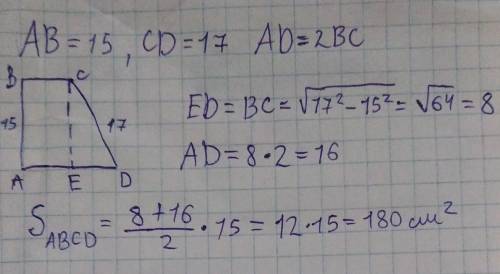 AB=15, CD=17 AD=2BC
B C
15 17
A E D
ED=BC=√17²-15²=√64=8
AD=8·2=16
S ABCD = 8+16/2 ·15=12·15=180 см²